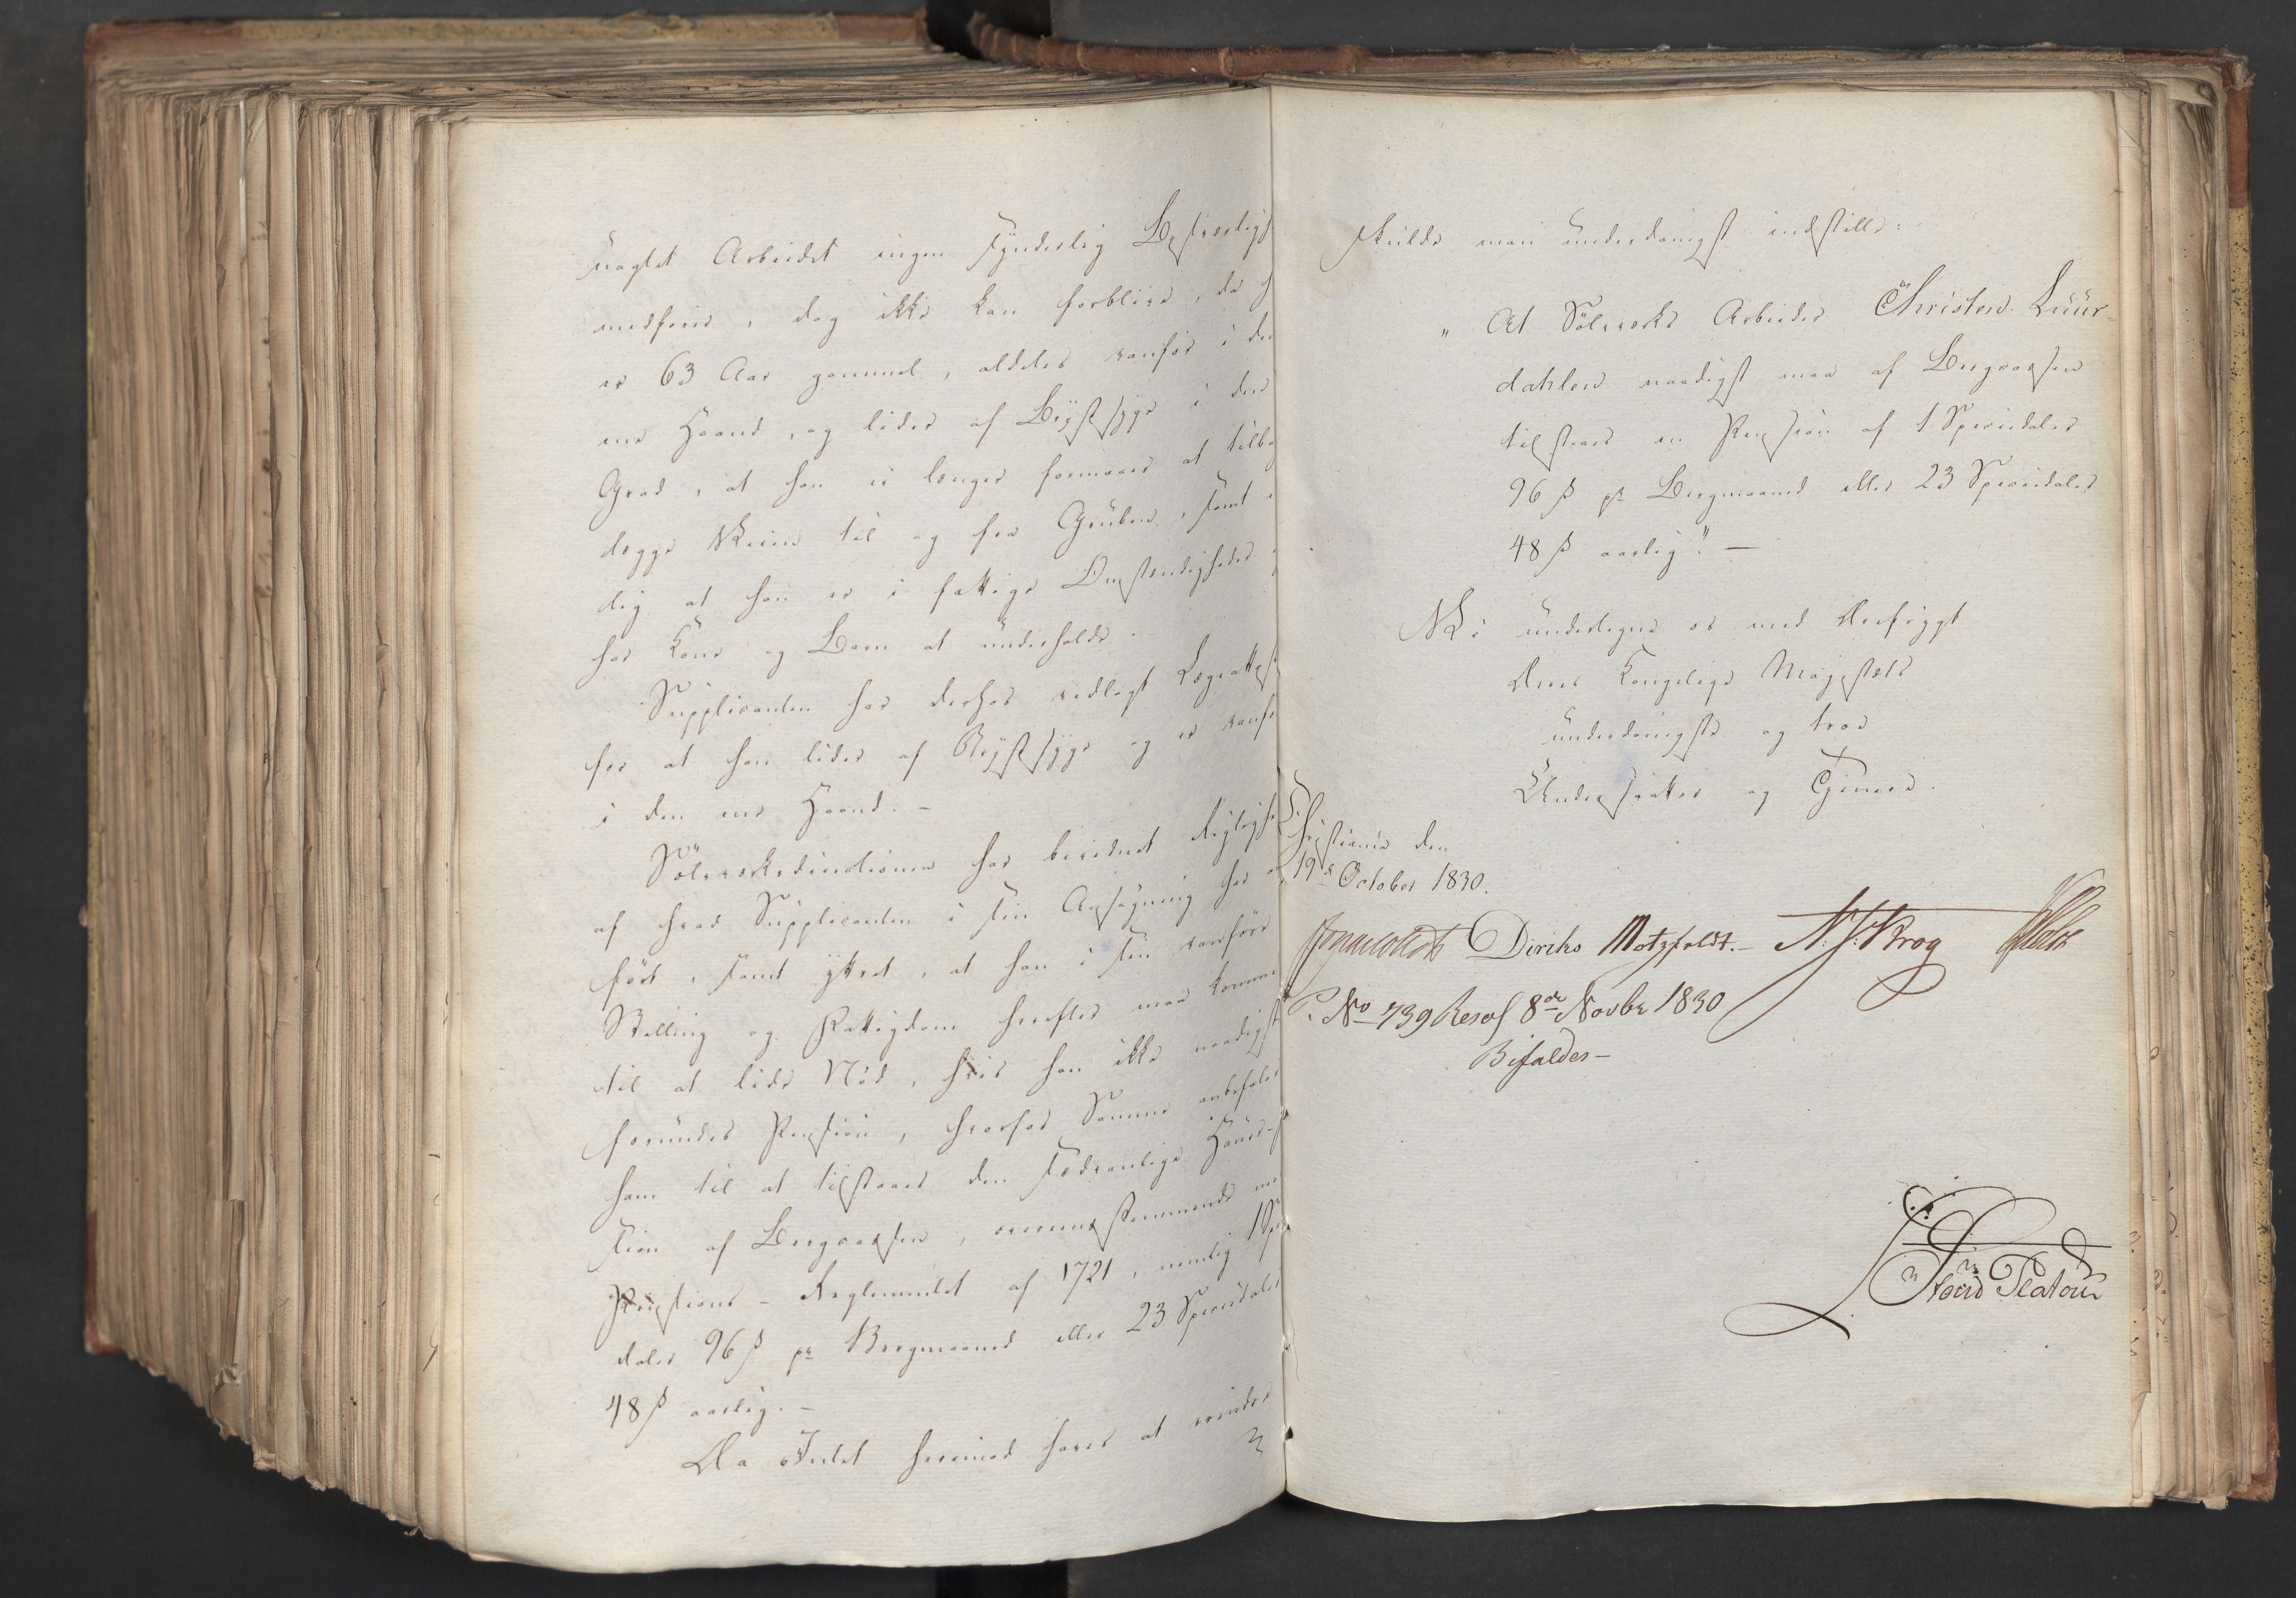 uagtet Arbeidet ingen synderlig Besværligh
medfører, dog ikke kan forblive, da h
er 63 Aar gammel, aldeles vanfør i den
ene Haand, og lider af Brystsyge i den
Grad, at han ei længer formaaer at tilba
lægge Veien til og fra Gruben, samt e
dig at han er i fattige Omstændigheder
har Kone og Børn at underholde.
Supplicanten har derhos vedlagt Lægeattest
for at han lider af Brystsyge og er vanfø
i den ene Haand. -
Sölvverksdirectionen har bevidnet Rigtigh
af hvad Supplicanten i sin Ansøgning har
ført, samt yttret, at han i sin vanføre
Stilling og Fattigdom herefter maa komme
til at lide Nöd, hvis han ikke naadigst
forundes Pension, hvorfor Samme anbefaler
ham til at tilstaaes den sædvanlige
sion af Bergcassen, overensstemmende m
Pensions-Reglementet af 1721, nemlig 1 Spe
daler 96 ß pr Bergmaaned eller 23 Speciedaler
48 ß aarlig. -
Da Intet herimod haves at erindre
skulde man underdanigst indstille:
"At Sölvverks Arbeider Christen Luur-
dahlen naadigst maa af Bergcassen
tilstaaes en Pension af 1 Speciedaler
96 ß pr Bergmaaned eller 23 Speciedaler
48 ß aarlig". -
Vi undertegne os med Ærefrygt
Deres Kongelige Majestæts
underdanigste og troe
Undersaatter og Tjenere.
Christiania den
19de October 1830.
Diriks Motzfeldt. - N. J. Krog
P. No 739 Resol 8de Novbr 1830
Bifaldes -
Fred Platou